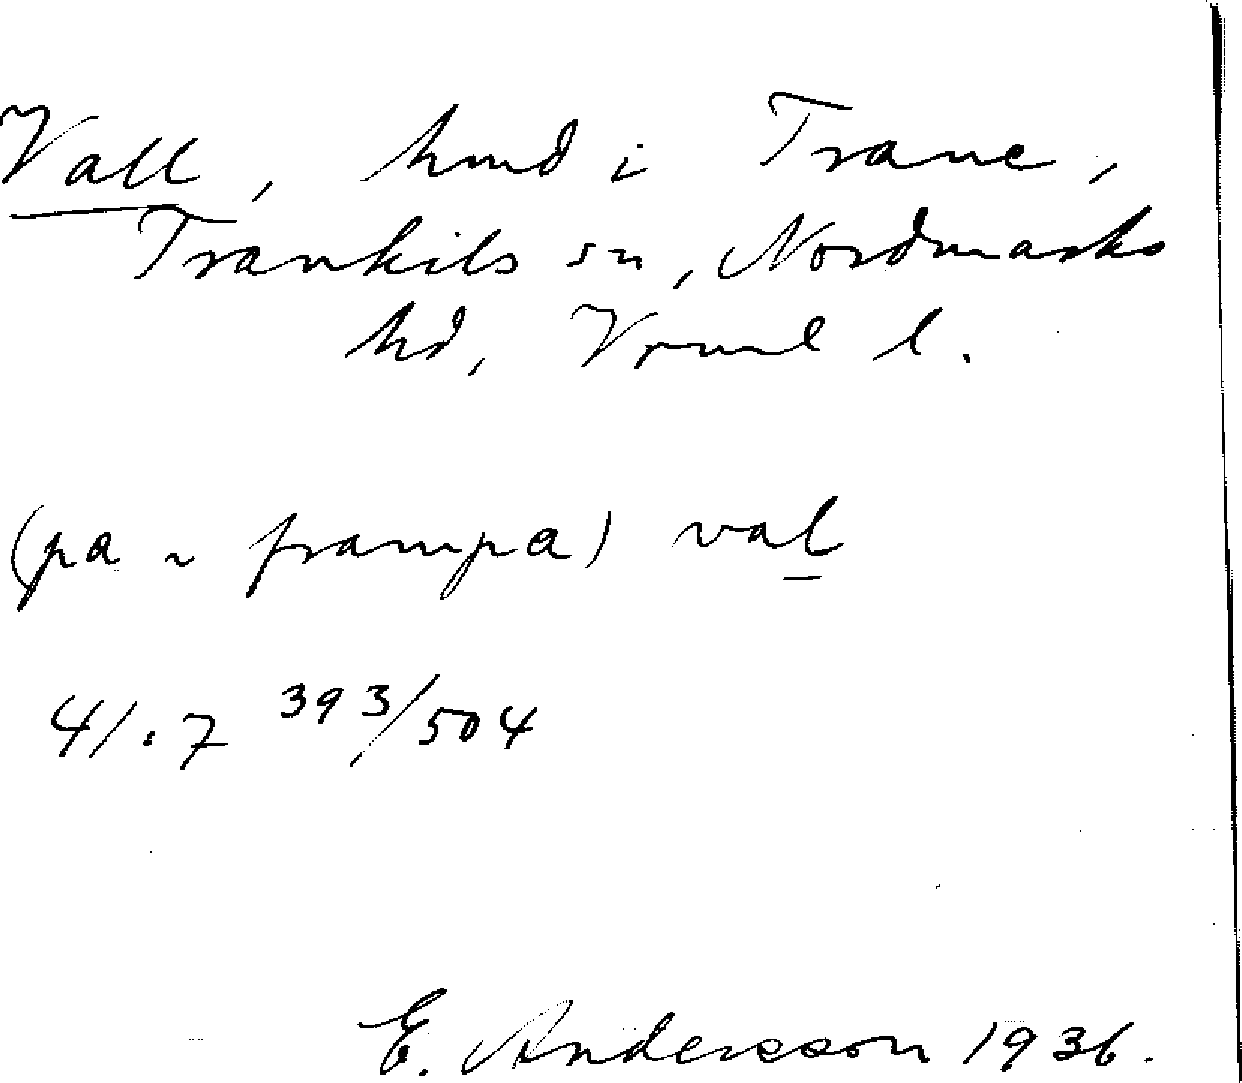 Vall, hmd i Trane,
Trankils sn, Nordmarks
hd, Vrml l.
(pa ~ frampa) val
41.7 393/504
E. Andersson 1936.